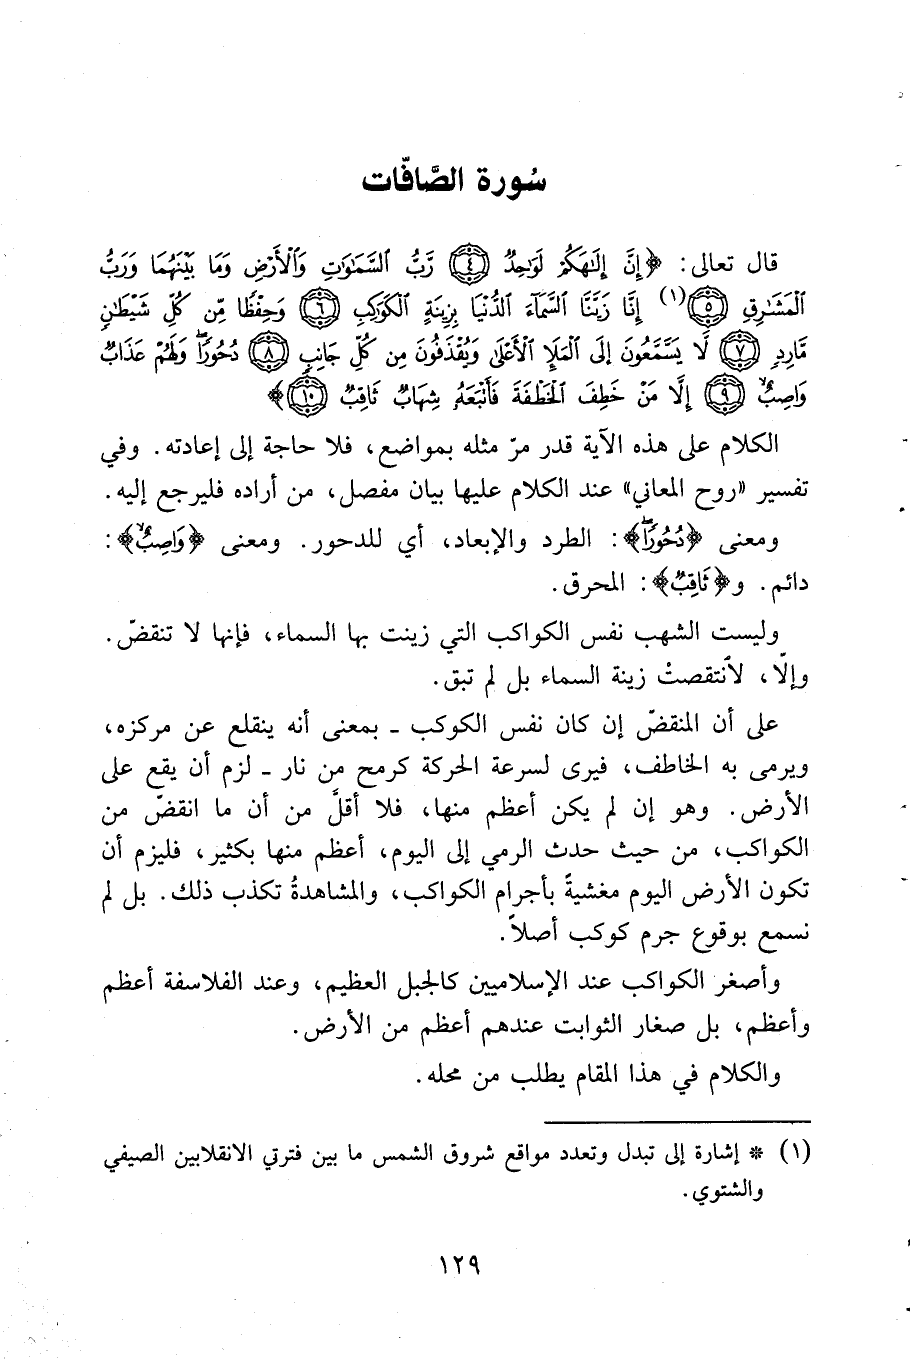 سُورة الصَّافَّات
قال تعالى: ﴿إِنَّ إِلَٰهَكُمْ لَوَٰحِدٌ ﴿٤﴾ رَّبُّ ٱلسَّمَٰوَٰتِ وَٱلْأَرْضِ وَمَا بَيْنَهُمَا وَرَبُّ
ٱلْمَشَٰرِقِ ﴿٥﴾(١) إِنَّا زَيَّنَّا ٱلسَّمَآءَ ٱلدُّنْيَا بِزِينَةٍ ٱلْكَوَاكِبِ ﴿٦﴾ وَحِفْظًا مِّن كُلِّ شَيْطَٰنٍ
مَّارِدٍ ﴿٧﴾ لَّا يَسَّمَّعُونَ إِلَى ٱلْمَلَإِ ٱلْأَعْلَىٰ وَيُقْذَفُونَ مِن كُلِّ جَانِبٍ ﴿٨﴾ دُحُورًا ۖ وَلَهُمْ عَذَابٌ
وَاصِبٌ ﴿٩﴾ إِلَّا مَنْ خَطِفَ ٱلْخَطْفَةَ فَأَتْبَعَهُۥ شِهَابٌ ثَاقِبٌ ﴿١٠﴾﴾
الكلام على هذه الآية قدر مرّ مثله بمواضع، فلا حاجة إلى إعادته. وفي
تفسير «روح المعاني» عند الكلام عليها بيان مفصل، من أراده فليرجع إليه.
ومعنى ﴿دُحُورًا ۖ﴾: الطرد والإبعاد، أي للدحور. ومعنى ﴿وَاصِبٌ﴾:
دائم. و﴿ثَاقِبٌ﴾: المحرق.
وليست الشهب نفس الكواكب التي زينت بها السماء، فإنها لا تنقضّ.
وإلّا، لأنتقصتْ زينة السماء بل لم تبق.
على أن المنقضّ إن كان نفس الكوكب ـ بمعنى أنه ينقلع عن مركزه،
ويرمى به الخاطف، فيرى لسرعة الحركة كرمح من نار ـ لزم أن يقع على
الأرض. وهو إن لم يكن أعظم منها، فلا أقلَّ من أن ما انقضّ من
الكواكب، من حيث حدث الرمي إلى اليوم، أعظم منها بكثير، فليزم أن
تكون الأرض اليوم مغشيةً بأجرام الكواكب، والمشاهدةُ تكذب ذلك. بل لم
نسمع بوقوع جرم كوكب أصلاً.
وأصغر الكواكب عند الإسلاميين كالجبل العظيم، وعند الفلاسفة أعظم
وأعظم، بل صغار الثوابت عندهم أعظم من الأرض.
والكلام في هذا المقام يطلب من محله.
(١) * إشارة إلى تبدل وتعدد مواقع شروق الشمس ما بين فترتي الانقلابين الصيفي
والشتوي.
١٢٩